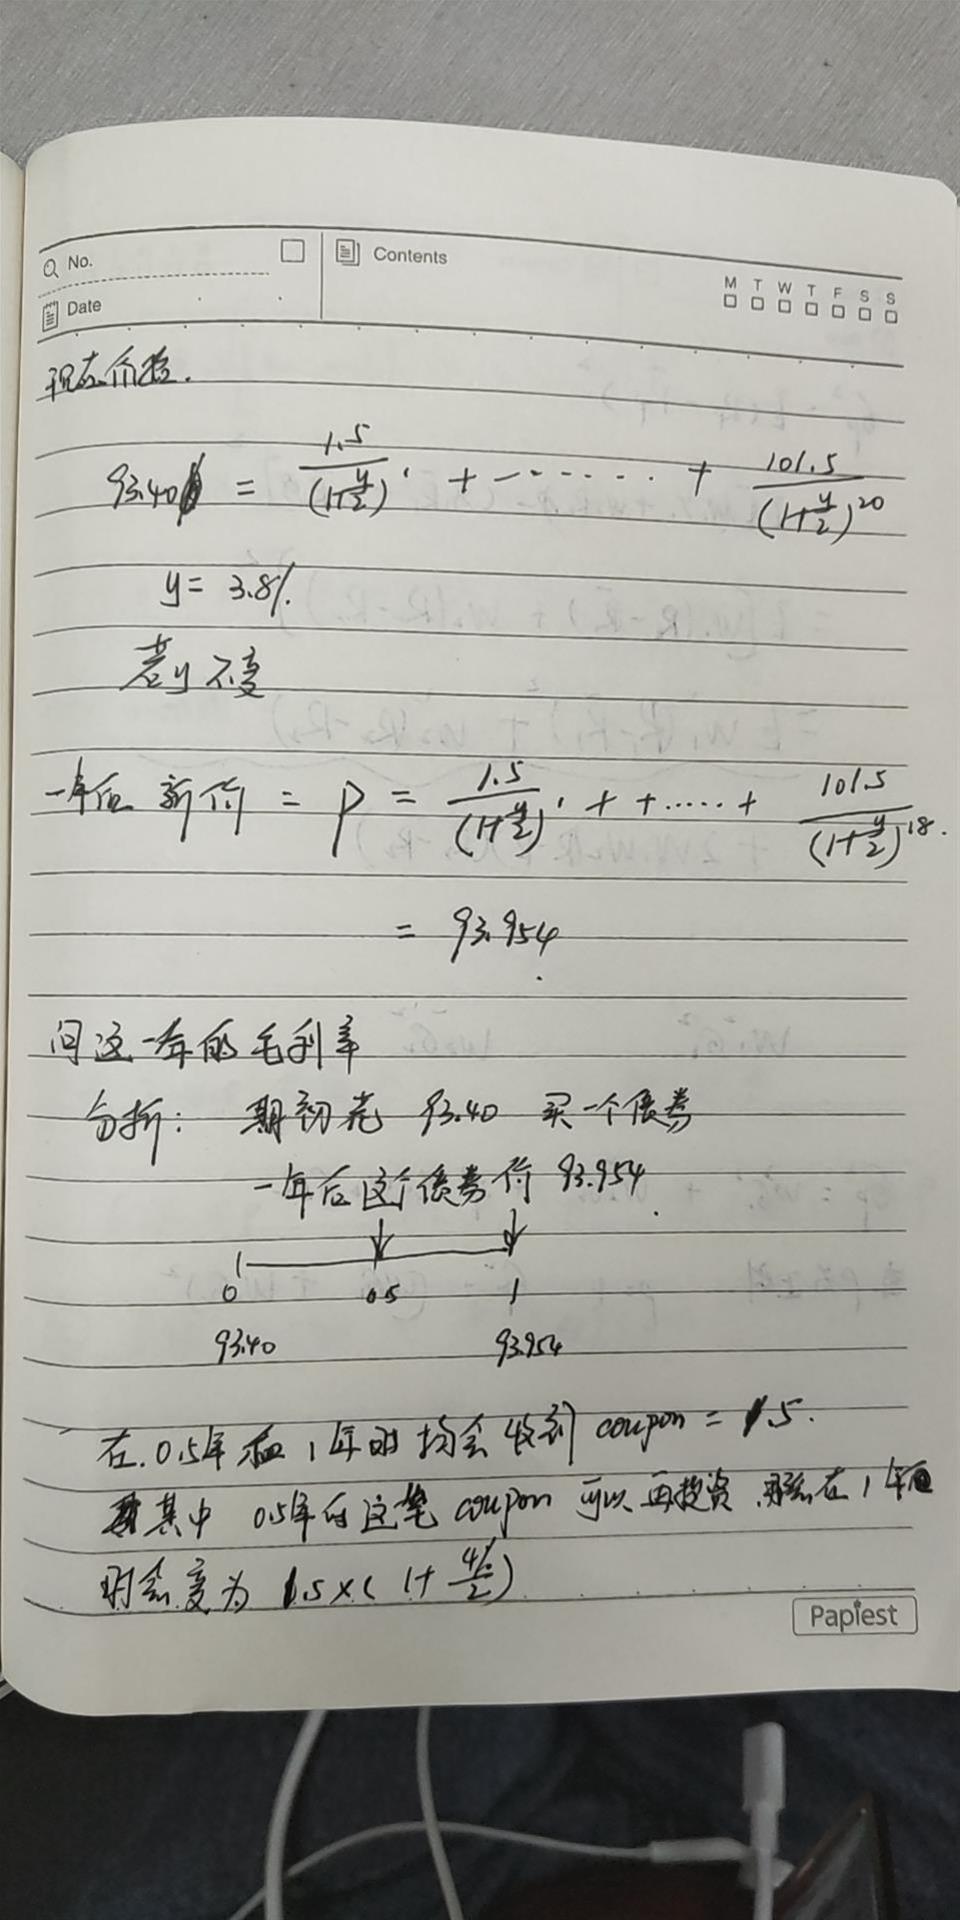 No.
Contents
M T W T F S S
Date
现在价格.
93.40 = 1.5/(1+y/2)¹ + ······· + 101.5/(1+y/2)²⁰
y = 3.8%.
若y不变
一年后 新价 = P = 1.5/(1+y/2)¹ + +·····+ 101.5/(1+y/2)¹⁸.
= 93.954
问这一年的毛利率
分析: 期初花 93.40 买一个债券
一年后这个债券价 93.954.
0 0.5 1
93.40 93.954
在.0.5年和1年时均会收到 coupon = 1.5.
其中 0.5年的这笔 coupon 可以再投资 在1年
时会变为 1.5×(1+ /2)
Papiest